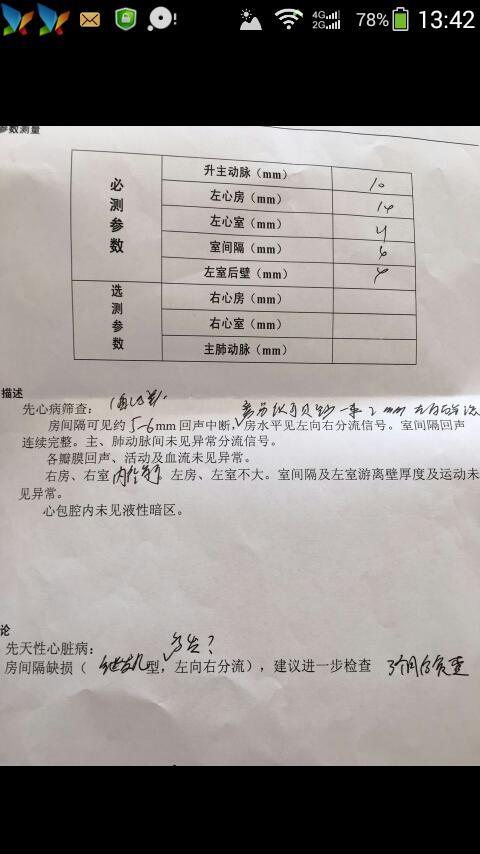 4G
2G
78%
13:42
参数测量
必测参数
升主动脉（mm） 10
左心房（mm） 14
左心室（mm）
室间隔（mm）
左室后壁（mm）
选测参数
右心房（mm）
右心室（mm）
主肺动脉（mm）
描述
先心病筛查：
房间隔可见约 5-6 mm 回声中断，房水平见左向右分流信号。室间隔回声
连续完整。主、肺动脉间未见异常分流信号。
各瓣膜回声、活动及血流未见异常。
右房、右室 内径 左房、左室不大。室间隔及左室游离壁厚度及运动未
见异常。
心包腔内未见液性暗区。
论
先天性心脏病：
房间隔缺损（ 继发孔 型，左向右分流），建议进一步检查 3个月后复查